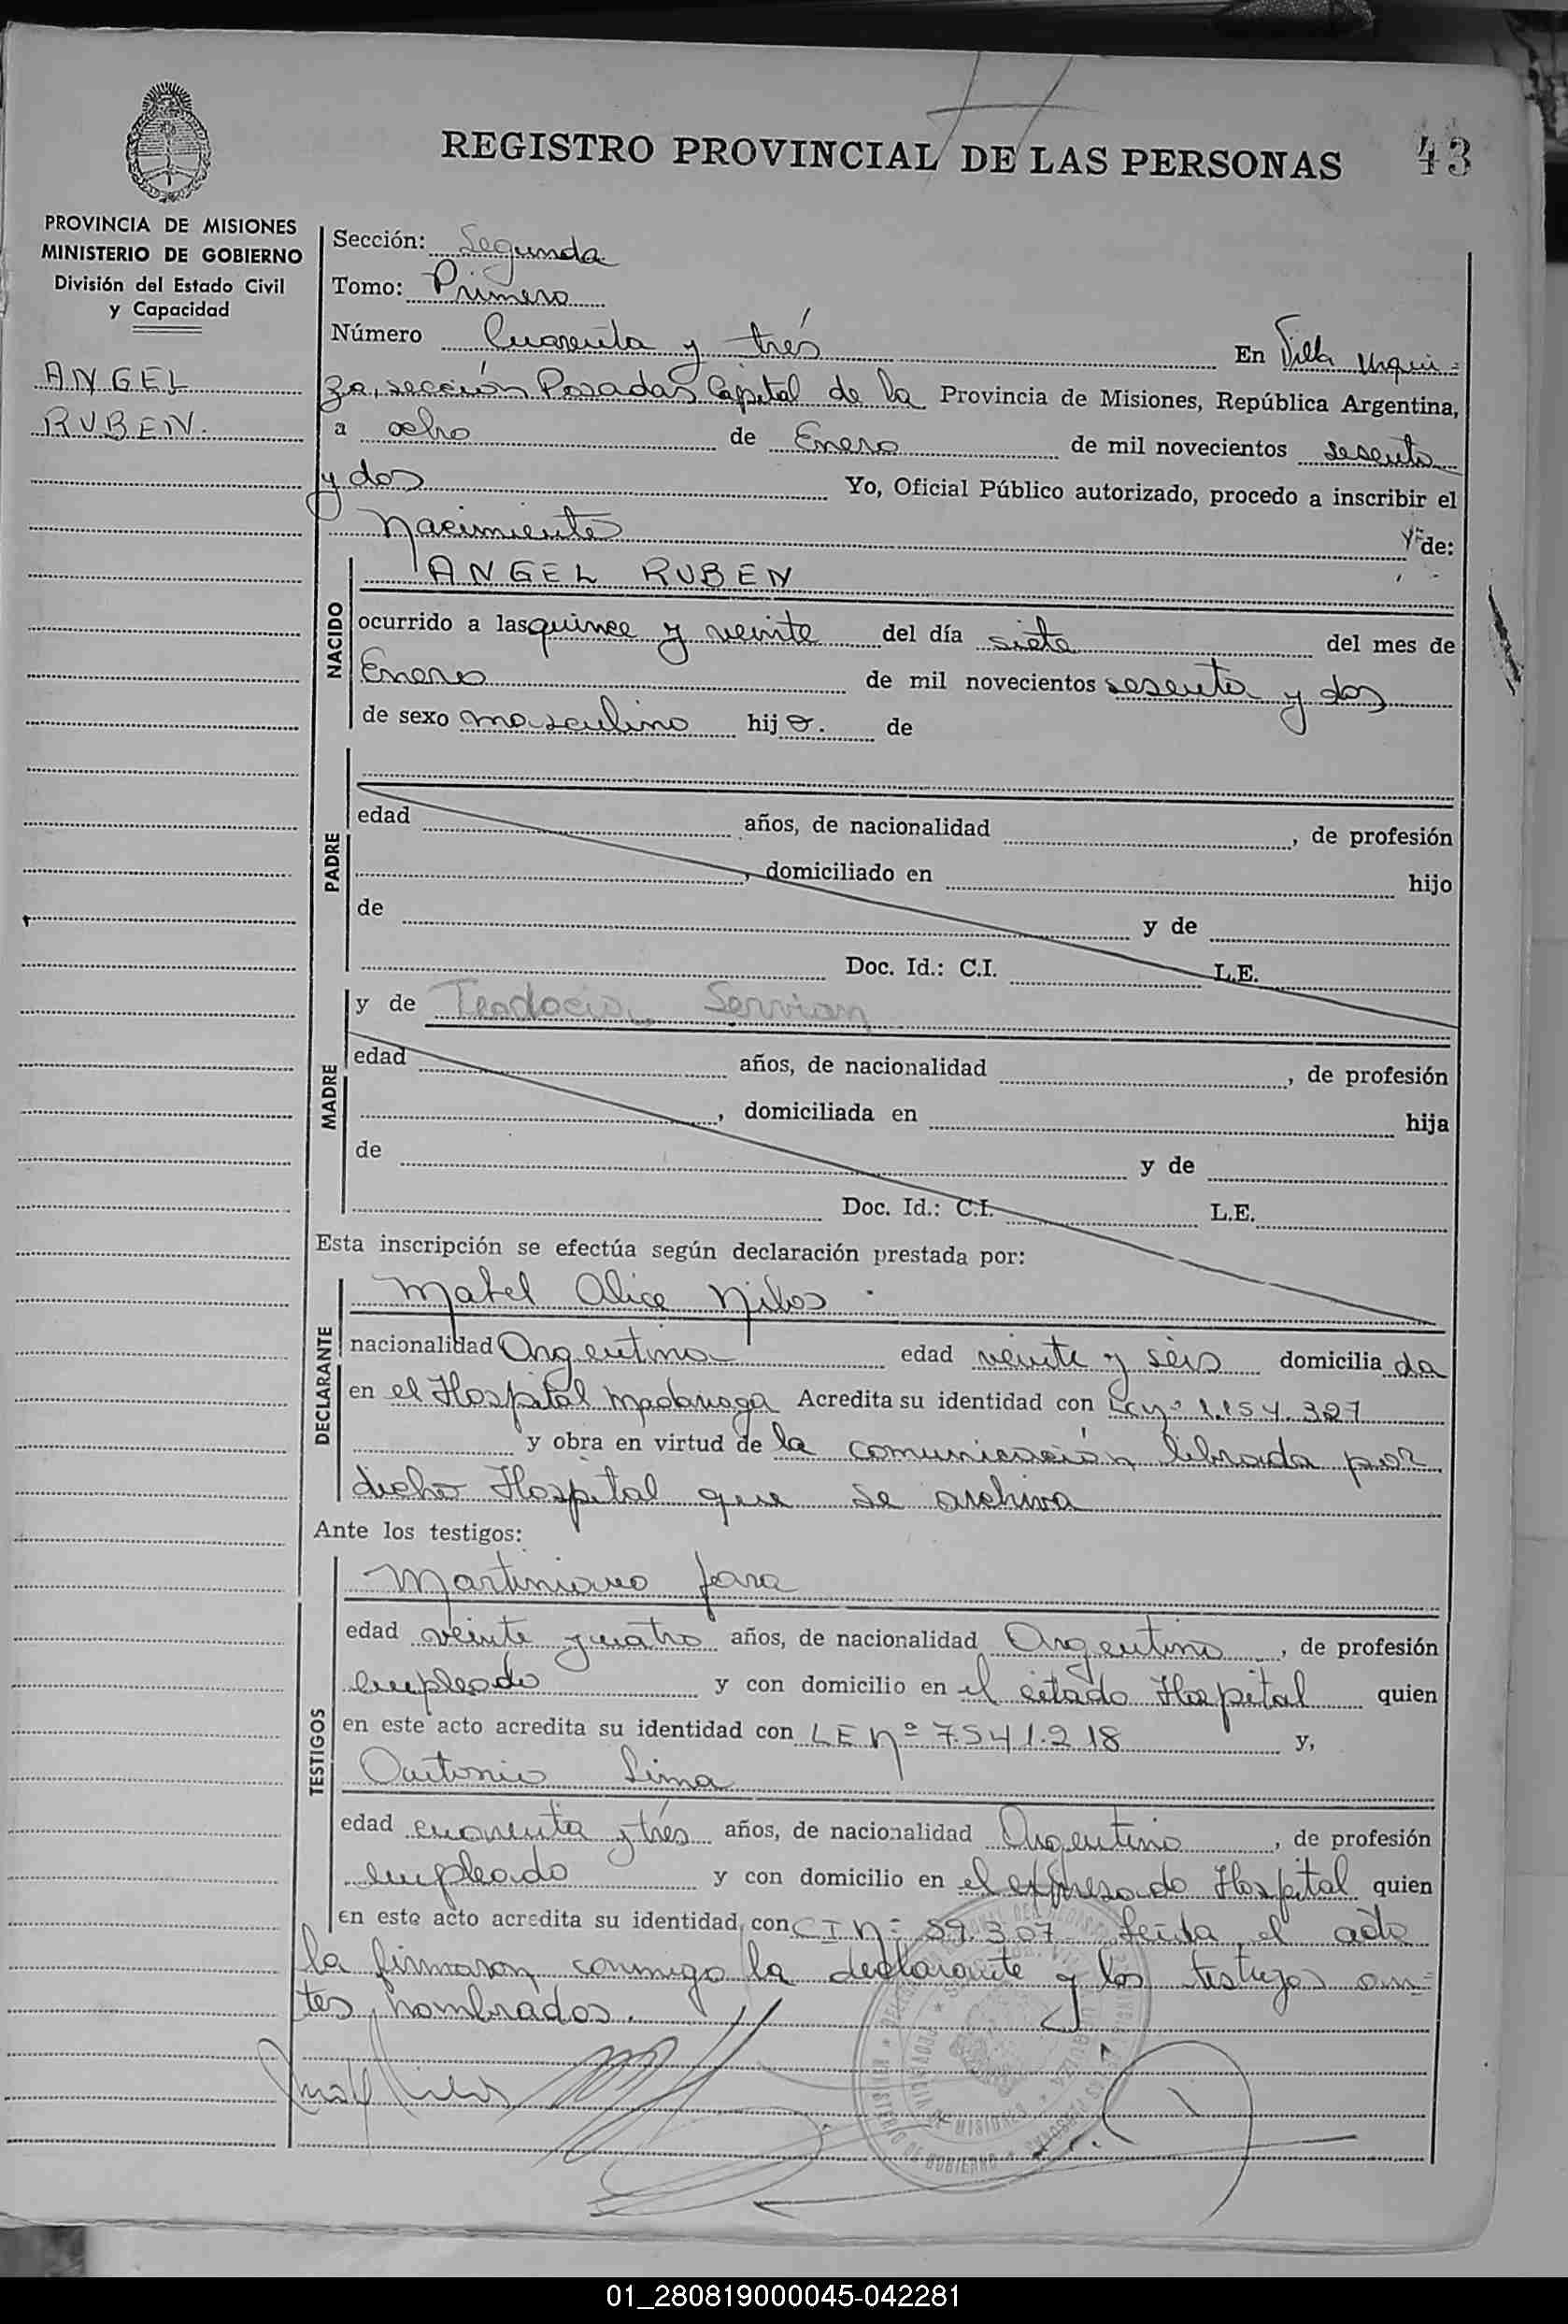 REGISTRO PROVINCIAL DE LAS PERSONAS 43
PROVINCIA DE MISIONES
MINISTERIO DE GOBIERNO
División del Estado Civil
y Capacidad
ANGEL
RUBEN.
Sección: Segunda
Tomo: Primero
Número Cuarenta y trés En Villa Urqui=
za, sección Posadas Capital de la Provincia de Misiones, República Argentina,
a ocho de Enero de mil novecientos sesenta
y dos Yo, Oficial Público autorizado, procedo a inscribir el
Nacimiento de:
NACIDO
ANGEL RUBEN
ocurrido a las quince y veinte del día siete del mes de
Enero de mil novecientos sesenta y dos
de sexo masculino hijo. de
PADRE
edad años, de nacionalidad , de profesión
, domiciliado en hijo
de y de
Doc. Id.: C.I. L.E.
MADRE
y de Teodocia Servian
edad años, de nacionalidad , de profesión
, domiciliada en hija
de y de
Doc. Id.: C.I. L.E.
Esta inscripción se efectúa según declaración prestada por:
DECLARANTE
Mabel Alice
nacionalidad Argentina edad veinte y seis domiciliada
en el Hospital Madariaga Acredita su identidad con 1.154.327
y obra en virtud de la comunicación librada por
dicho Hospital que se archiva
Ante los testigos:
TESTIGOS
Martiniano Jara
edad veinte y cuatro años, de nacionalidad Argentino, de profesión
empleado y con domicilio en el citado Hospital quien
en este acto acredita su identidad con LE Nº 7.541.218 y,
Antonio Lima
edad cuarenta y trés años, de nacionalidad Argentino, de profesión
empleado y con domicilio en el expresado Hospital quien
en este acto acredita su identidad con CI Nº 59.307 leida el acta
la firmaron conmigo la declarante y los testigos an=
tes nombrados.
01_280819000045-042281